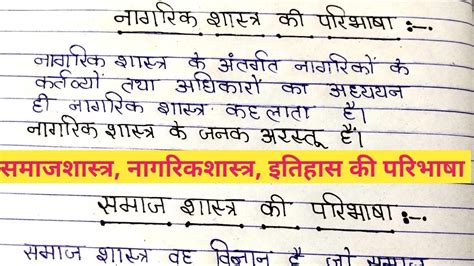 नागरिक शास्त्र की परिभाषा :-.
नागरिक शास्त्र के अंतर्गत नागरिकों के
कर्तव्यों तथा अधिकारों का अध्ययन
ही नागरिक शास्त्र कहलाता है।
नागरिक शास्त्र के जनक अरस्तू हैं।
समाजशास्त्र, नागरिकशास्त्र, इतिहास की परिभाषा
समाज शास्त्र की परिभाषा :-.
समाज शास्त्र वह विज्ञान है जो समाज